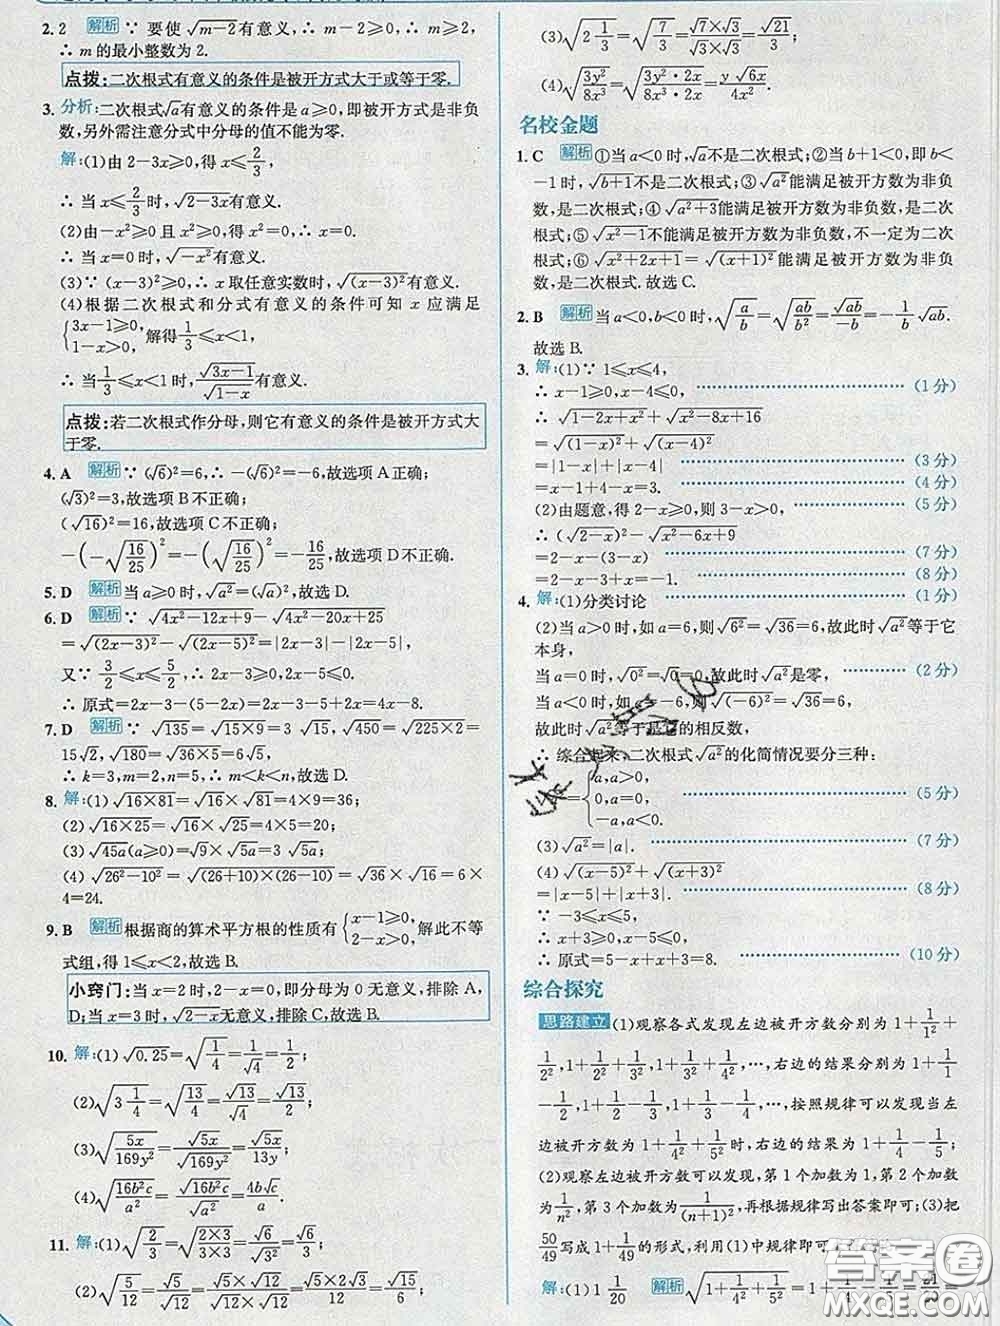 2. 2 解析 ∵ 要使 √(m-2)有意义,∴ m-2⩾0,∴ m⩾2,
∴ m 的最小整数为 2.
点拨:二次根式有意义的条件是被开方式大于或等于零.
3. 分析:二次根式√a有意义的条件是 a⩾0,即被开方式是非负
数,另外需注意分式中分母的值不能为零.
解:(1)由 2-3x⩾0,得 x⩽2/3,
∴ 当 x⩽2/3 时,√(2-3x)有意义.
(2)由-x²⩾0 且 x²⩾0,得 x²=0,∴ x=0.
∴ 当 x=0 时,√(-x²)有意义.
(3)∵ (x-3)²⩾0,∴ x 取任意实数时,√((x-3)²)有意义.
(4)根据二次根式和分式有意义的条件可知 x 应满足
{3x-1⩾0, 1-x>0, 解得1/3⩽x<1,
∴ 当1/3⩽x<1 时,√(3x-1)/√(1-x)有意义.
点拨:若二次根式作分母,则它有意义的条件是被开方式大
于零.
4. A 解析 ∵ (√6)²=6,∴ -(√6)²=-6,故选项 A 正确;
(√3)²=3,故选项 B 不正确;
(√16)²=16,故选项 C 不正确;
-(-√(16/25))²=-(√(16/25))²=-16/25,故选项 D 不正确.
5. D 解析 当 a⩾0 时,√(a²)=(√a)²,故选 D.
6. D 解析 ∵ √(4x²-12x+9)-√(4x²-20x+25)
=√((2x-3)²)-√((2x-5)²)=|2x-3|-|2x-5|,
又∵ 3/2⩽x⩽5/2,∴ 2x-3⩾0,2x-5⩽0,
∴ 原式=2x-3+2x-5=4x-8.故选 D.
7. D 解析 ∵ √135=√(15×9)=3 √15,√450=√(225×2)=
15√2,√180=√(36×5)=6√5,
∴ k=3,m=2,n=5,∴ m<k<n.故选 D.
8. 解:(1)√(16×81)=√16×√81=4×9=36;
(2)√(16×25)=√16×√25=4×5=20;
(3)√(45a)(a⩾0)=√9×√(5a)=3 √(5a);
(4) √(26²-10²)=√((26+10)×(26-10))=√36×√16=6×
4=24.
9. B 解析 根据商的算术平方根的性质有{x-1⩾0, 2-x>0, 解此不等
式组,得 1⩽x<2,故选 B.
小窍门:当 x=2 时,2-x=0,即分母为 0 无意义,排除 A,
D;当 x=3 时,√(2-x)无意义,排除 C,故选 B.
10. 解:(1)√0.25=√(1/4)=√1/√4=1/2;
(2)√(3 1/4)=√(13/4)=√13/√4=√13/2;
(3)√(5x/169y²)=√(5x)/√(169y²)=√(5x)/13y;
(4)√(16b²c/a²)=√(16b²c)/√(a²)=4b√c/a.
11. 解:(1)√(2/3)=√((2×3)/(3×3))=√6/√9=√6/3;
(2)√(5/12)=√5/√12=(√5×√12)/(√12×√12)=2√15/12=√15/6;
(3)√(2 1/3)=√(7/3)=(√7×√3)/(√3×√3)=√21/3;
(4)√(3y²/8x³)=√((3y²·2x)/(8x³·2x))=y √(6x)/4x².
名校金题
1. C 解析 ①当 a<0 时,√a不是二次根式;②当 b+1<0,即 b<
-1 时,√(b+1)不是二次根式;③√(a²)能满足被开方数为非负
数,是二次根式;④√(a²+3)能满足被开方数为非负数,是二次
根式;⑤√(-1)不能满足被开方数为非负数,不一定为二次根
式;⑥√(x²+2x+1)=√((x+1)²)能满足被开方数为非负数,
是二次根式.故选 C.
2. B 解析 当 a<0,b<0 时,√(a/b)=√(ab/b²)=√(ab)/(-b)=-1/b √(ab).
故选 B.
3. 解:(1)∵ 1⩽x⩽4,
∴ x-1⩾0,x-4⩽0. (1 分)
∴ √(1-2x+x²)+√(x²-8x+16)
=√((1-x)²)+√((x-4)²)
=|1-x|+|x-4| (3 分)
=x-1+4-x=3. (4 分)
(2)由题意,得 2-x⩾0,则 3-x>0, (5 分)
∴ (√(2-x))²-√(x²-6x+9)
=2-x-(3-x) (7 分)
=2-x-3+x=-1. (8 分)
4. 解:(1)分类讨论 (1 分)
(2)当 a>0 时,如 a=6,则√(6²)=√36=6,故此时√(a²)等于它
本身,
当 a=0 时,√(0²)=√0=0,故此时√(a²)是零, (2 分)
当 a<0 时,如 a=-6,则√((-6)²)=√36=6,
故此时√(a²)等于是它的相反数,
∴ 综合起来,二次根式√(a²)的化简情况要分三种:
={a,a>0, 0,a=0, -a,a<0. (5 分)
(3)√(a²)=|a|. (7 分)
(4) √((x-5)²)+√((x+3)²)
=|x-5|+|x+3|. (8 分)
∵ -3⩽x⩽5,
∴ x+3⩾0,x-5⩽0,
∴ 原式=5-x+x+3=8. (10 分)
综合探究
思路建立 (1)观察各式发现左边被开方数分别为 1+1/1²+
1/2²,1+1/2²+1/3²,1+1/3²+1/4²,…,右边的结果分别为 1+1/1
-1/2,1+1/2-1/3,1+1/3-1/4,…,按照规律可以发现当左
边被开方数为 1+1/4²+1/5²时,右边的结果为 1+1/4-1/5;
(2)观察左边被开方数可以发现,第 1 个加数为 1,第 2 个加数
为1/n²,第 3 个加数为1/(n+1)²,再根据规律写出答案即可;(3)把
50/49写成 1+1/49的形式,利用(1)中规律即可
解:(1)1 1/20 解析 √(1+1/4²+1/5²)=1+1/4-1/5=21/20
答案圈
MXQE.COM